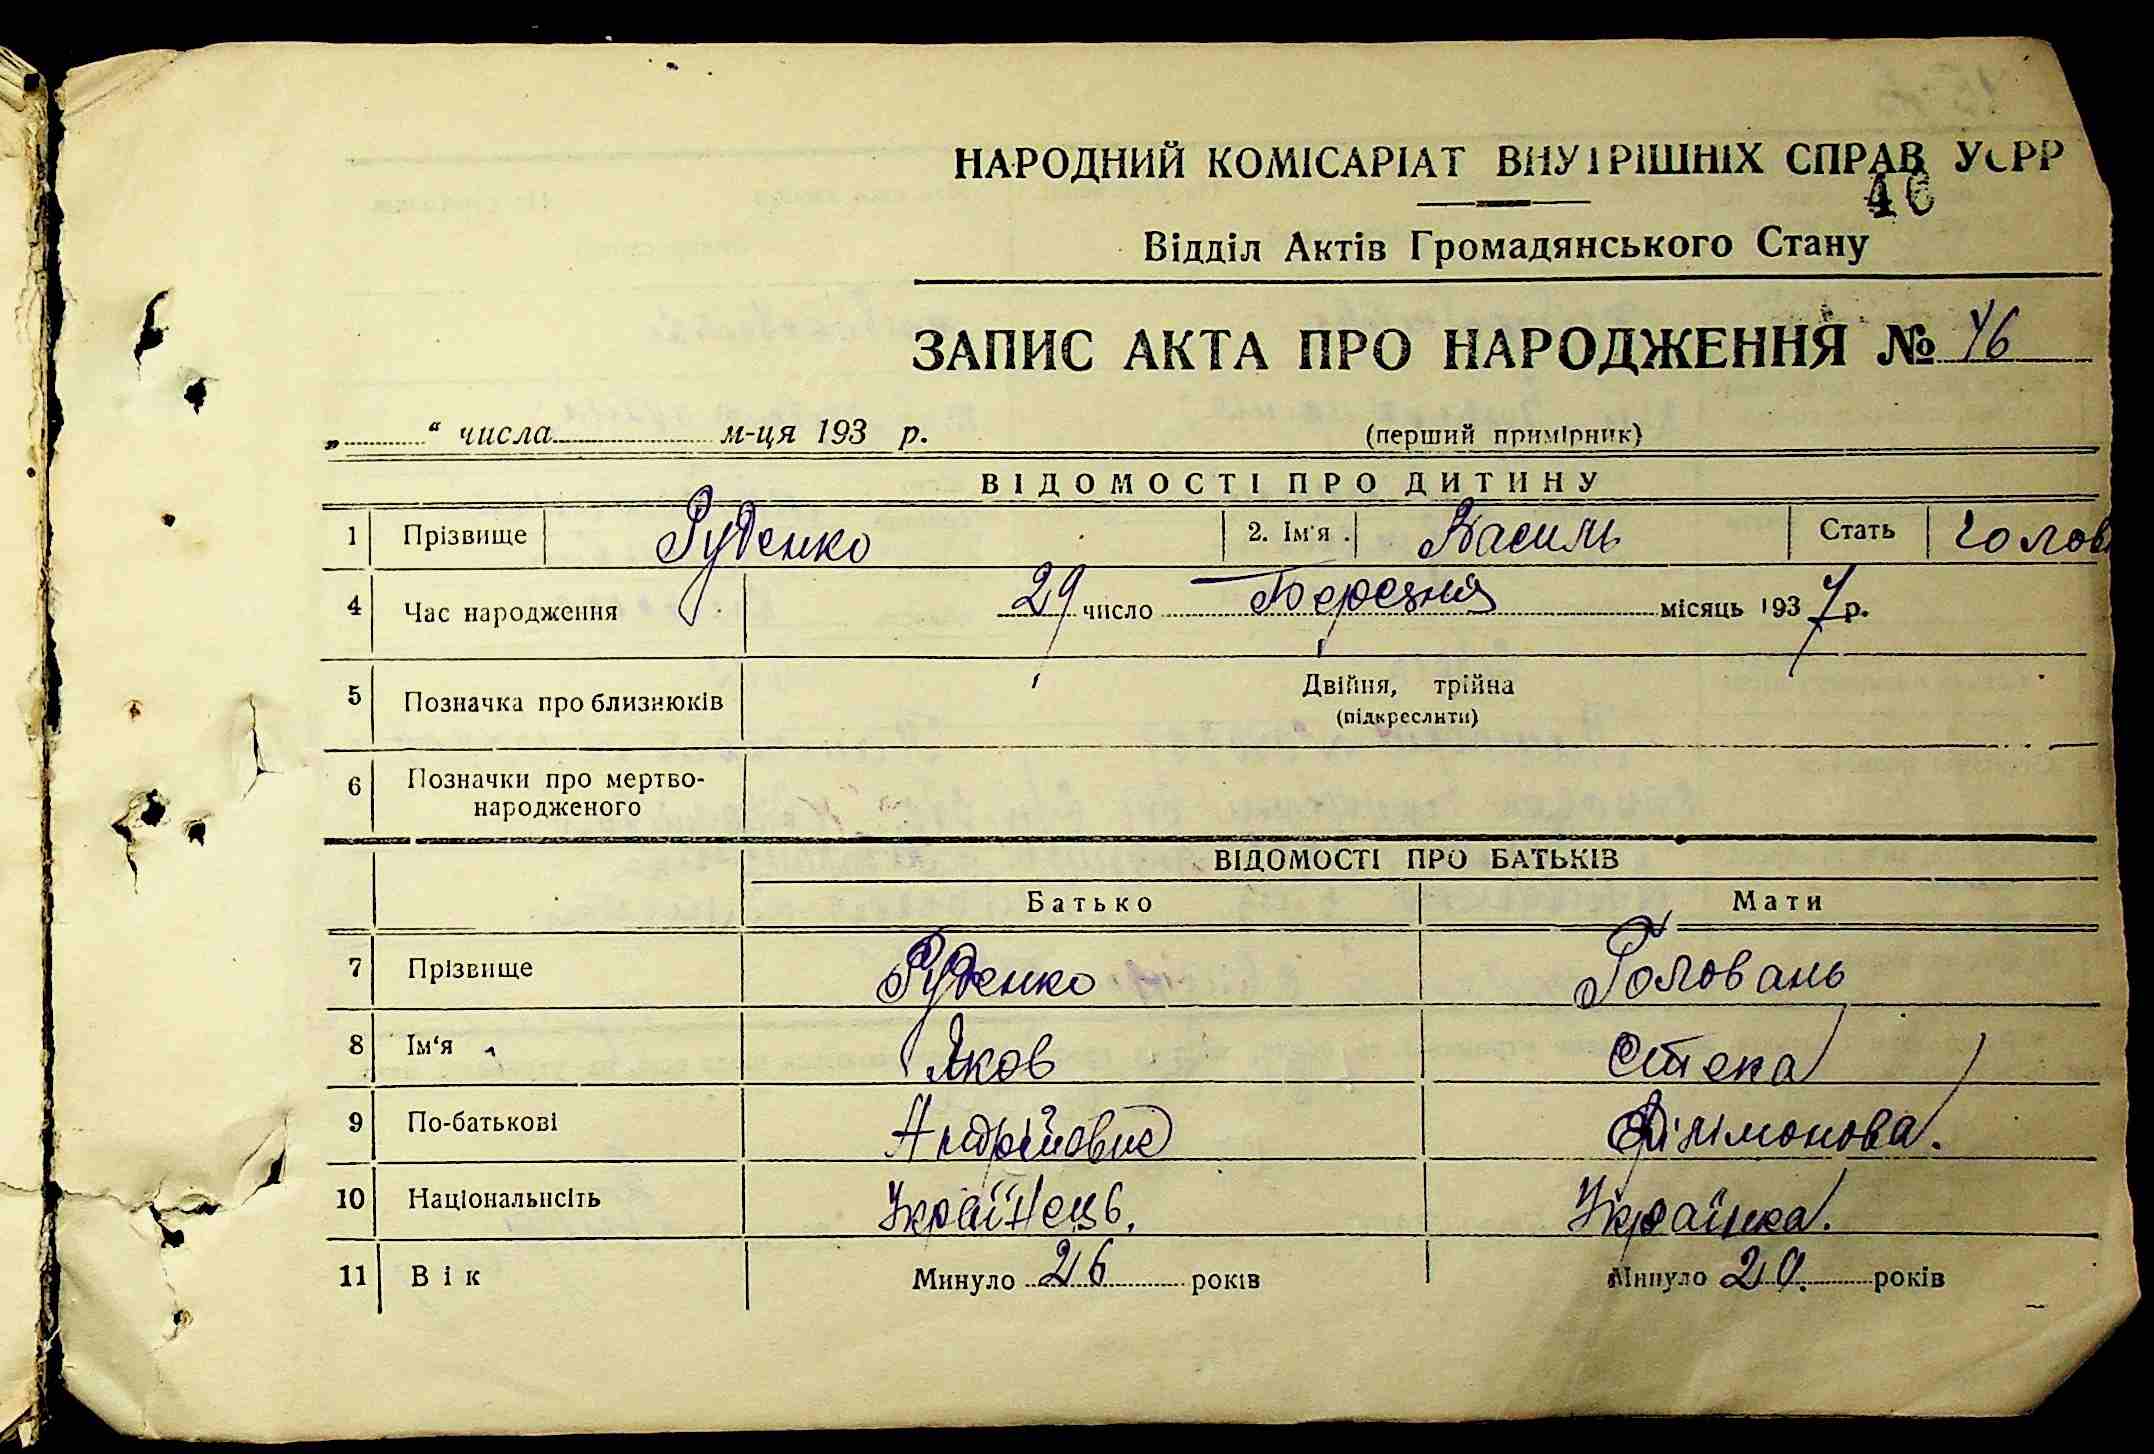 НАРОДНИЙ КОМІСАРІАТ ВНУТРІШНІХ СПРАВ УСРР
46
Відділ Актів Громадянського Стану
ЗАПИС АКТА ПРО НАРОДЖЕННЯ № 46
„ “ числа м-ця 193 р.
(перший примірник)
ВІДОМОСТІ ПРО ДИТИНУ
1 Прізвище Руденко 2. Ім'я Василь Стать Чолов
4 Час народження 29 число Березня місяць 1937 р.
5 Позначка про близнюків Двійня, трійна
(підкреслити)
6 Позначки про мертво-
народженого
ВІДОМОСТІ ПРО БАТЬКІВ
Батько Мати
7 Прізвище Руденко Головань
8 Ім'я Яков
9 По-батькові Андрійовис Філімонова.
10 Національнсіть Українець. Українка.
11 Вік Минуло 26 років Минуло 20. років